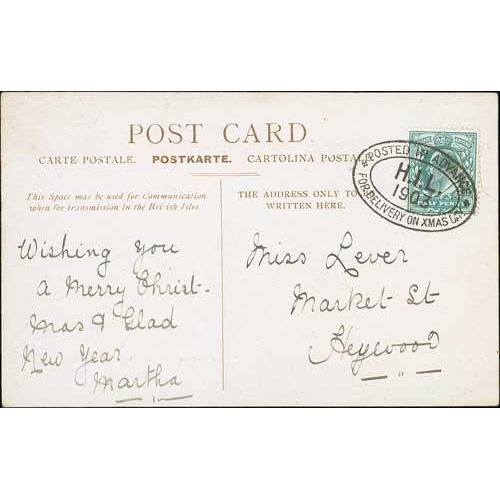 POST CARD.
CARTE POSTALE. POSTKARTE. CARTOLINA POSTALE
This Space may be used for Communication
when for transmission in the British Isles
THE ADDRESS ONLY TO
WRITTEN HERE.
* POSTED IN ADVANCE *
FOR DELIVERY ON XMAS DAY
H.L.
190
HALF PENNY
Wishing You
a Merry Christ-
mas & Glad
New Year.
Martha
Miss Lever
Market St
Heywood